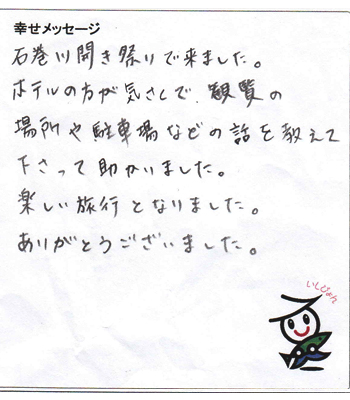 幸せメッセージ
石巻川開き祭りで来ました。
ホテルの方が気さくで、観覧の
場所や駐車場などの話を教えて
下さって助かりました。
楽しい旅行となりました。
ありがとうございました。
いしぴょん